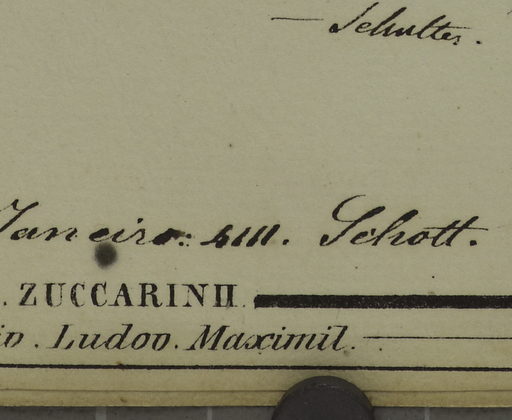 — Schultes.
Janeiro. Schott.
. ZUCCARINII
. Ludov. Maximil.